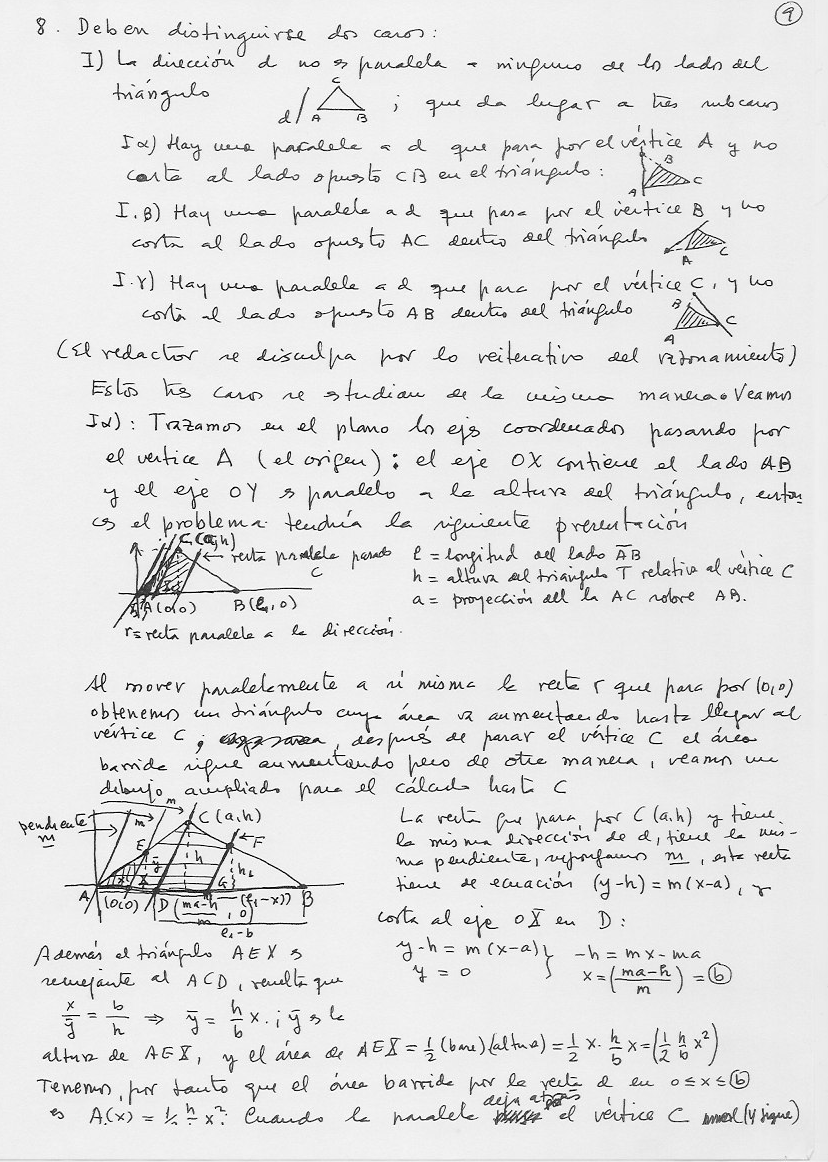 9
8. Deben distinguirse dos casos:
I) La dirección d no es paralela a ninguno de los lados del
triángulo d A B C ; que da lugar a tres subcasos
Iα) Hay una paralela a d que pasa por el vértice A y no
corta al lado opuesto CB en el triángulo: A B C
I.β) Hay una paralela a d que pasa por el vértice B y no
corta al lado opuesto AC dentro del triángulo A C
I.γ) Hay una paralela a d que pasa por el vértice C, y no
corta al lado opuesto AB dentro del triángulo A B C
(El redactor se disculpa por lo reiterativo del razonamiento)
Estos tres casos se estudian de la misma manera. Veamos
Iα): Trazamos en el plano los ejes coordenados pasando por
el vertice A (el origen): el eje OX contiene el lado AB
y el eje OY es paralelo a la altura del triángulo, enton-
ces el problema tendría la siguiente presentación
C(a,h) ← recta paralela
C
A(0,0) B(ℓ1,0)
r=recta paralela a la dirección.
ℓ = longitud del lado AB
h = altura del triángulo T relativa al vértice C
a = proyección del la AC sobre AB.
Al mover paralelamente a sí misma la recta r que pasa por (0,0)
obtenemos un triángulo cuya área va aumentando hasta llegar al
vértice C; después de pasar el vértice C el área
barrida sigue aumentando pero de otra manera, veamos un
dibujo ampliado para el cálculo hasta C
pendiente m
m m C(a,h)
E F
ȳ h h1
x X G
A (0,0) D (ma-h/m, 0) (ℓ1-x) B
ℓ1-b
La recta que pasa por C(a,h) y tiene
la misma dirección de d, tiene la mis-
ma pendiente, supongamos m, esta recta
tiene de ecuación (y-h) = m(x-a), y
corta al eje OX en D:
y-h = m(x-a) } -h = mx-ma
y = 0 x = (ma-h/m) = b
Además el triángulo AEX es
semejante al ACD, resulta que
x/ȳ = b/h ⇒ ȳ = h/b x.; ȳ es la
altura de AEX, y el área de AEX = 1/2 (base)(altura) = 1/2 x · h/b x = (1/2 h/b x²)
Tenemos, por tanto que el área barrida por la recta d en 0≤x≤b
es A.(x) = 1/2 h/b x². Cuando la paralela deja atrás el vértice C (y sigue)